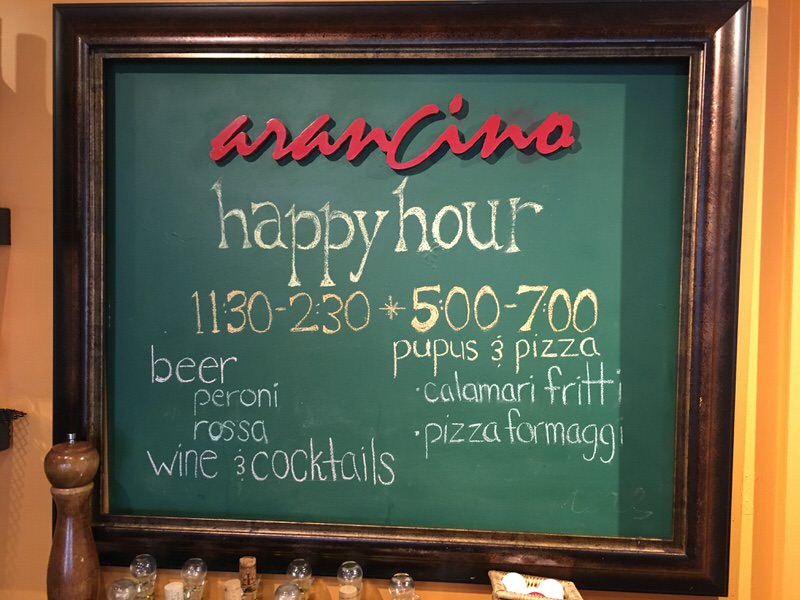 arancino
happy hour
11:30-2:30 * 5:00-7:00
beer
peroni
rossa
wine & cocktails
pupus & pizza
· calamari fritti
· pizza formaggi